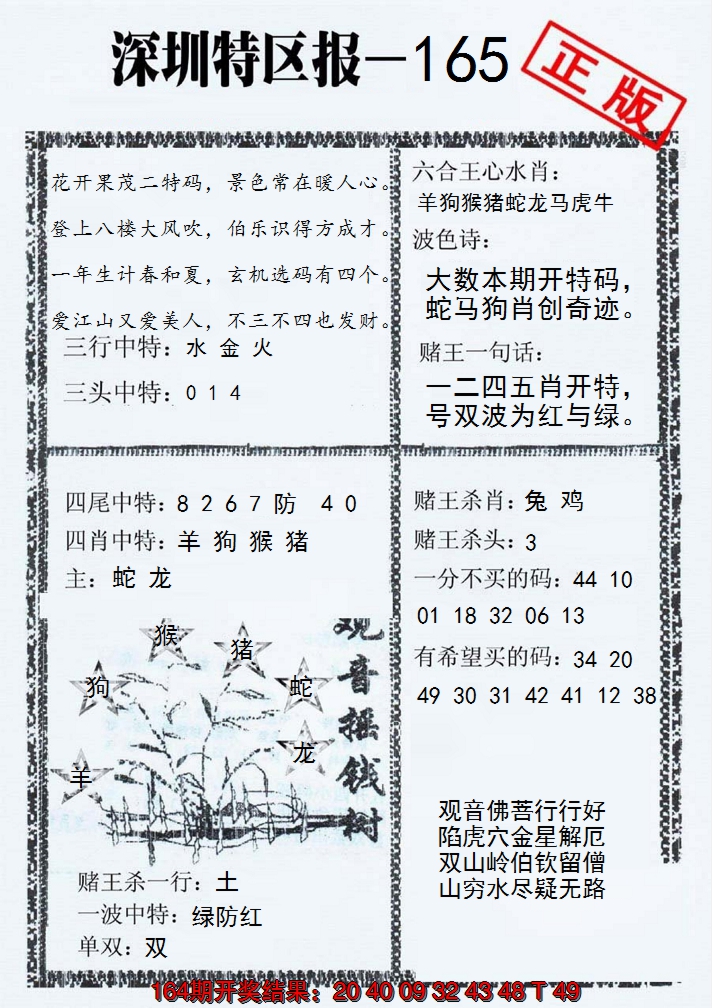 深圳特区报-165
正版
花开果茂二特码，景色常在暖人心。
登上八楼大风吹，伯乐识得方成才。
一年生计春和夏，玄机选码有四个。
爱江山又爱美人，不三不四也发财。
三行中特：水 金 火
三头中特：0 1 4
六合王心水肖：
羊狗猴猪蛇龙马虎牛
波色诗：
大数本期开特码，
蛇马狗肖创奇迹。
赌王一句话：
一二四五肖开特，
号双波为红与绿。
四尾中特：8 2 6 7 防 4 0
四肖中特：羊 狗 猴 猪
主：蛇 龙
猴
猪
狗
蛇
龙
羊
观音摇钱树
赌王杀一行：土
一波中特：绿防红
单双：双
赌王杀肖：兔 鸡
赌王杀头：3
一分不买的码：44 10
01 18 32 06 13
有希望买的码：34 20
49 30 31 42 41 12 38
观音佛菩行行好
陷虎穴金星解厄
双山岭伯钦留僧
山穷水尽疑无路
164期开奖结果：20 40 09 32 43 48 T 49